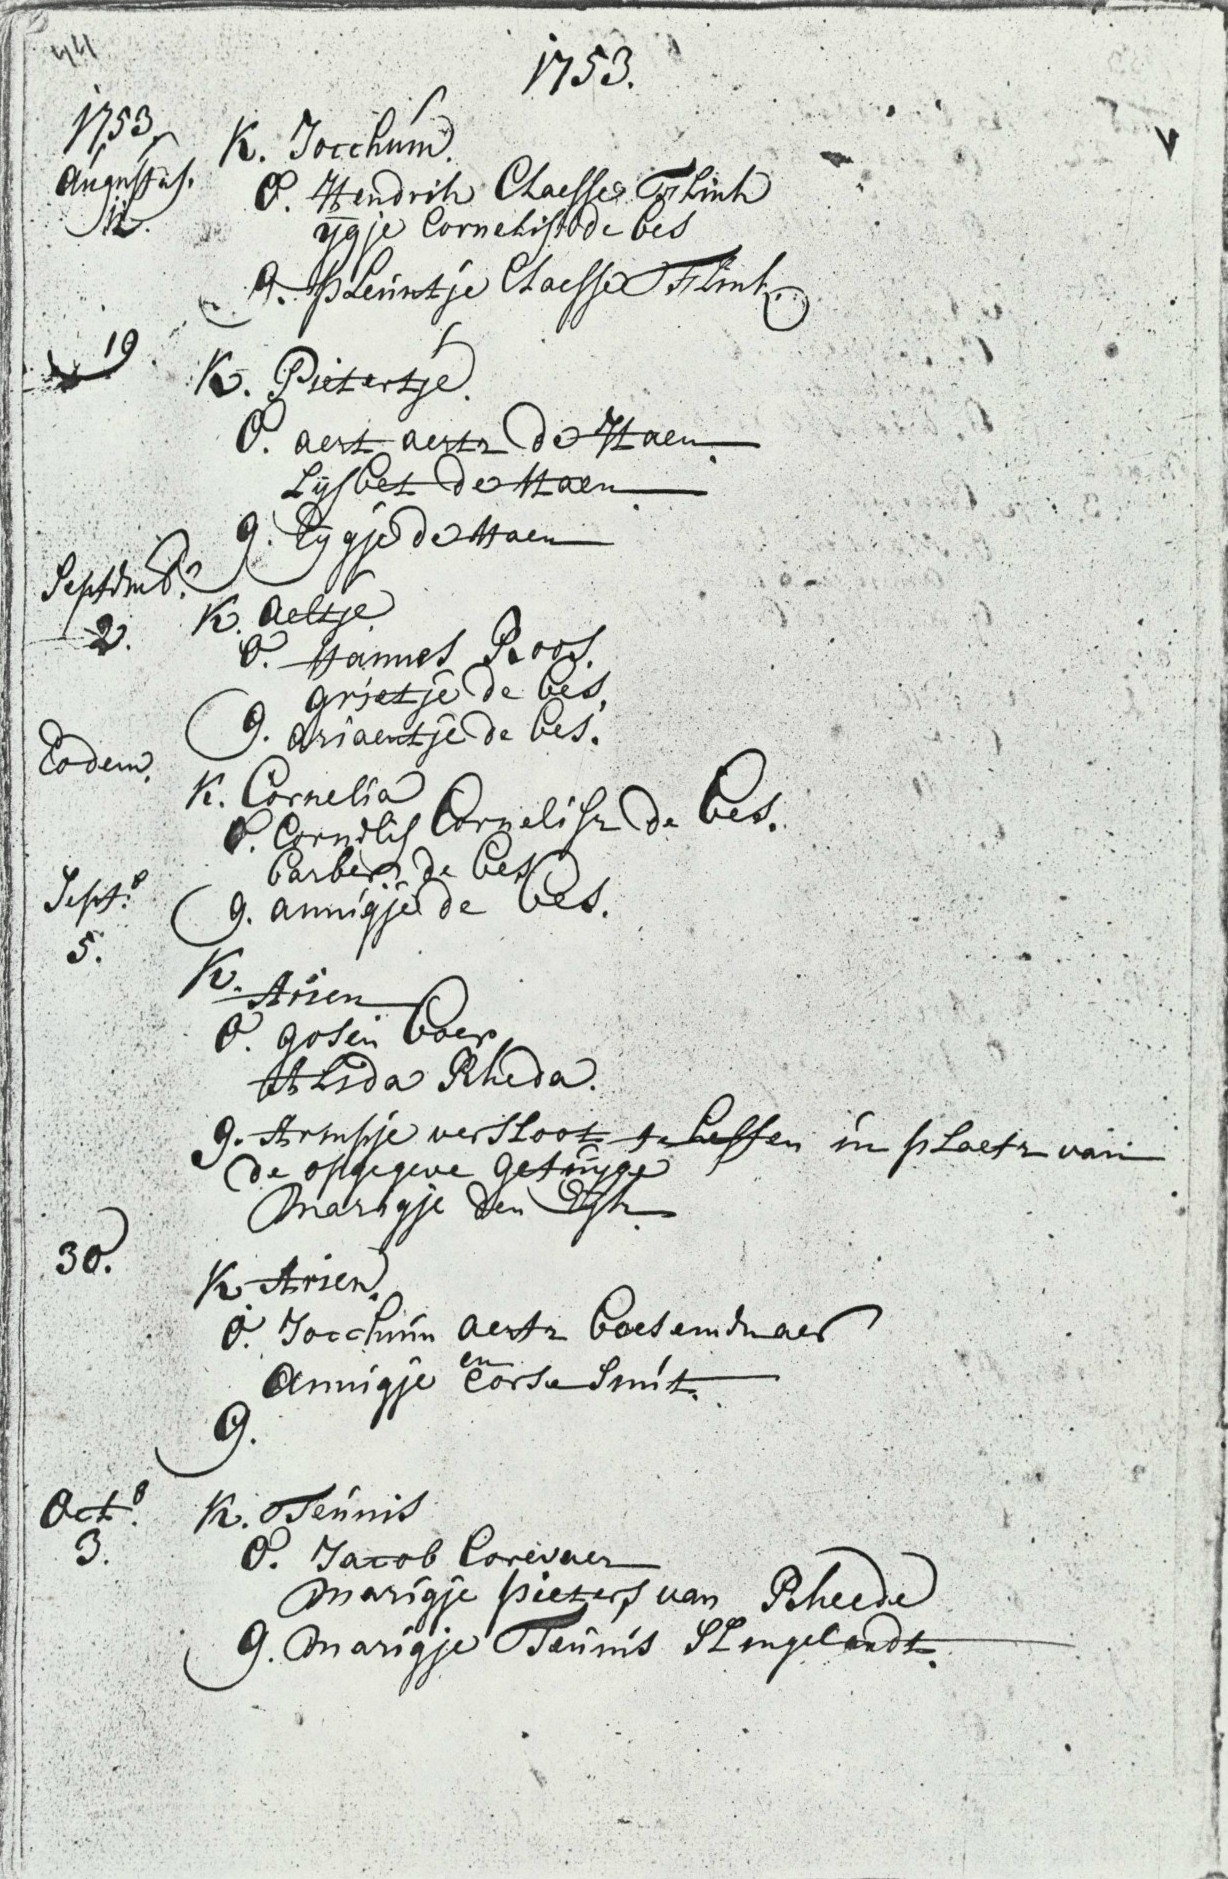 44
1753.
1753.
Augustus.
12.
K. Jocchum.
O. Hendrik Claesse Flink
ÿgje Cornelis de bes
g. pLeuntje Claesse Flink.
19
K. Pietertje.
O. aert aertz de Haen.
Lijsbet de Haen
g. Eÿgje de Haen
Septemb.r
2.
K. aeltje
O. Hannes Roos.
grietje de bes,
g. ariaentje de bes.
Eodem.
K. Cornelia
O. Cornelis Cornelisz de bes.
barber de bes
g. annigje de bes.
Sept.r
5.
K. Arien
O. gosen boer
ALida Rheda.
g. Armpje versLoot te heffen in pLaetz van
de opgegeve getuijge
Marigje den Dijk.
30.
K Arien.
O. Jocchum aertz boesemduaer
en
Annigje Corse Smit.
g.
Oct.r
3.
K. Teunis
O. Jacob Corevaer
Marigje pieters van Rheede
g. Marigje Teunis SLingelandt.